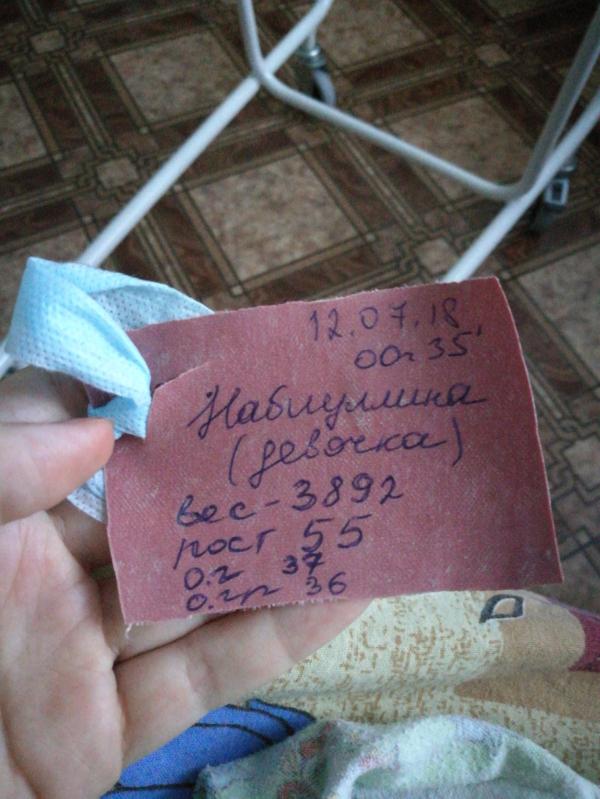 12.07.18
00ч 35'
Набиуллина
(девочка)
вес - 3892
рост 55
о.г 37
о.гр 36